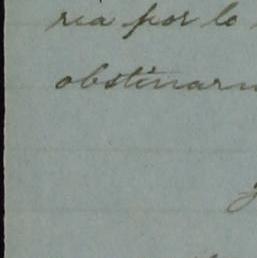 ria por lo
obstinarn